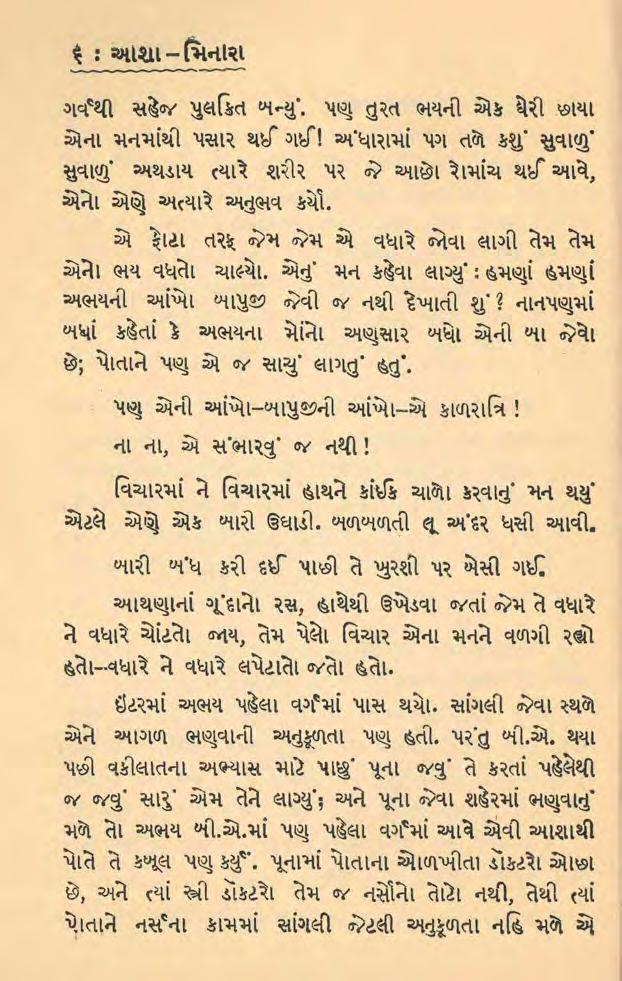 ૬ : આશા – મિનારા
ગર્વથી સહેજ પુલકિત બન્યું. પણ તુરત ભયની એક ઘેરી છાયા
એના મનમાંથી પસાર થઈ ગઈ! અંધારામાં પગ તળે કશું સુવાળું
સુવાળું અથડાય ત્યારે શરીર પર જે આછો રોમાંચ થઈ આવે,
એનો એણે અત્યારે અનુભવ કર્યો.
એ ફોટા તરફ જેમ જેમ એ વધારે જોવા લાગી તેમ તેમ
એનો ભય વધતો ચાલ્યો. એનું મન કહેવા લાગ્યું : હમણાં હમણાં
અભયની આંખો બાપુજી જેવી જ નથી દેખાતી શું ? નાનપણમાં
બધાં કહેતાં કે અભયના મોંનો અણુસાર બધો એની બા જેવો
છે; પોતાને પણ એ જ સાચું લાગતું હતું.
પણ એની આંખો–બાપુજીની આંખો–એ કાળરાત્રિ !
ના ના, એ સંભારવું જ નથી !
વિચારમાં ને વિચારમાં હાથને કાંઈક ચાળો કરવાનું મન થયું
એટલે એણે એક બારી ઉઘાડી. બળબળતી લૂ અંદર ધસી આવી.
બારી બંધ કરી દઈ પાછી તે ખુરશી પર બેસી ગઈ.
આથણાનાં ગૂંદાનો રસ, હાથેથી ઉખેડવા જતાં જેમ તે વધારે
ને વધારે ચોંટતો જાય, તેમ પેલો વિચાર એના મનને વળગી રહ્યો
હતો–વધારે ને વધારે લપેટાતો જતો હતો.
ઇંટરમાં અભય પહેલા વર્ગમાં પાસ થયો. સાંગલી જેવા સ્થળે
એને આગળ ભણવાની અનુકૂળતા પણ હતી. પરંતુ બી.એ. થયા
પછી વકીલાતના અભ્યાસ માટે પાછું પૂના જવું તે કરતાં પહેલેથી
જ જવું સારું એમ તેને લાગ્યું; અને પૂના જેવા શહેરમાં ભણવાનું
મળે તો અભય બી.એ.માં પણ પહેલા વર્ગમાં આવે એવી આશાથી
પોતે તે કબૂલ પણ કર્યું. પૂનામાં પોતાના ઓળખીતા ડૉક્ટરો ઓછા
છે, અને ત્યાં સ્ત્રી ડૉક્ટરો તેમ જ નર્સોનો તોટો નથી, તેથી ત્યાં
પોતાને નર્સના કામમાં સાંગલી જેટલી અનુકૂળતા નહિ મળે એ